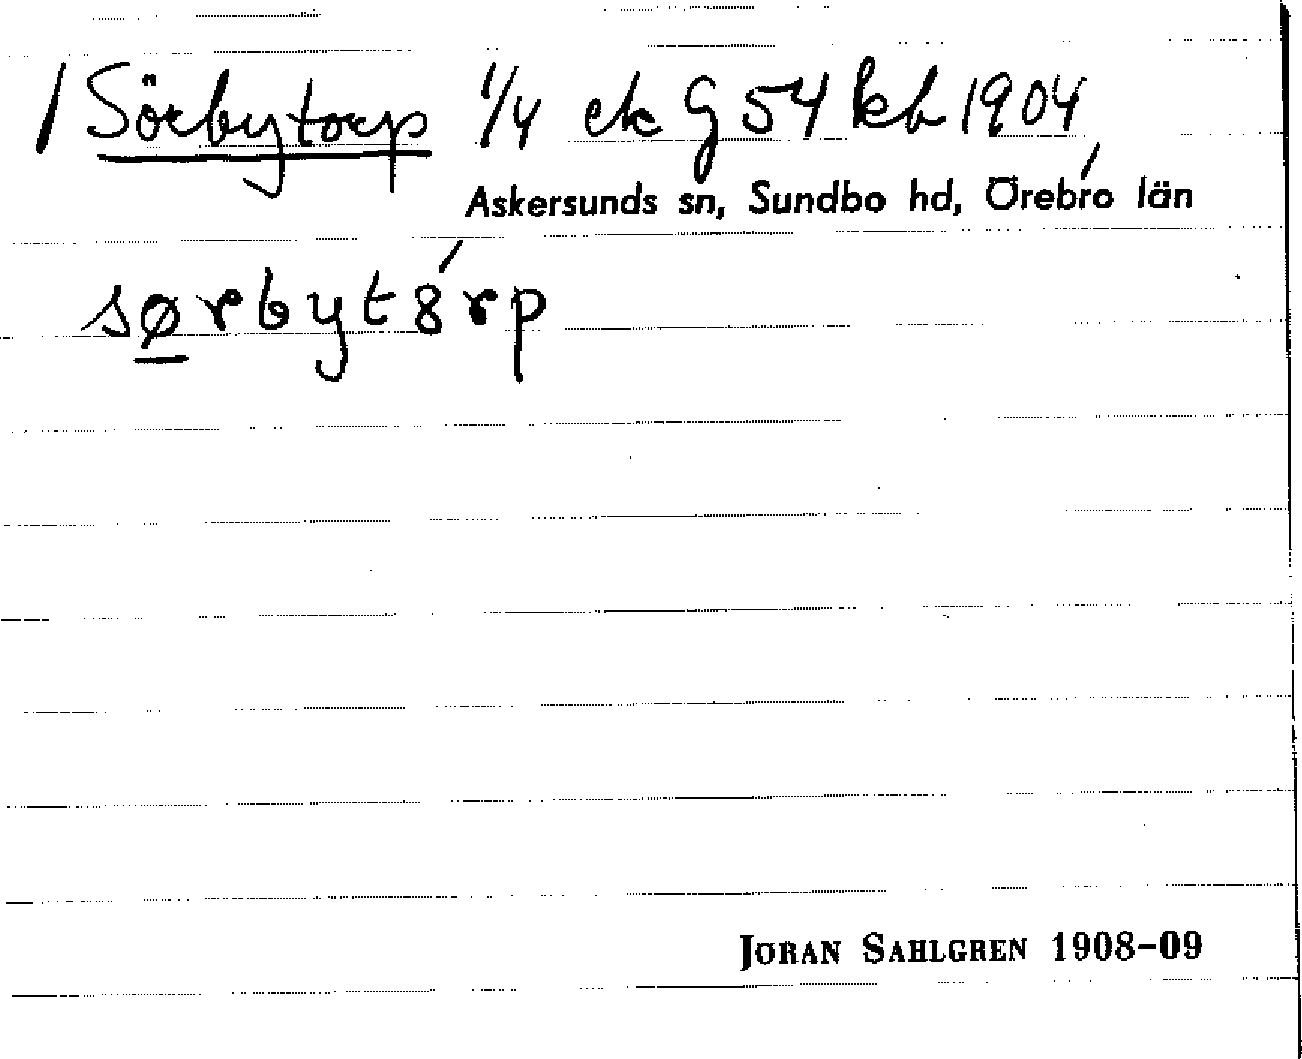 / Sörbytorp 1/4 ek G 54 kb 1904
Askersunds sn, Sundbo hd, Örebro län
sørbyt8́rp
JORAN SAHLGREN 1908-09